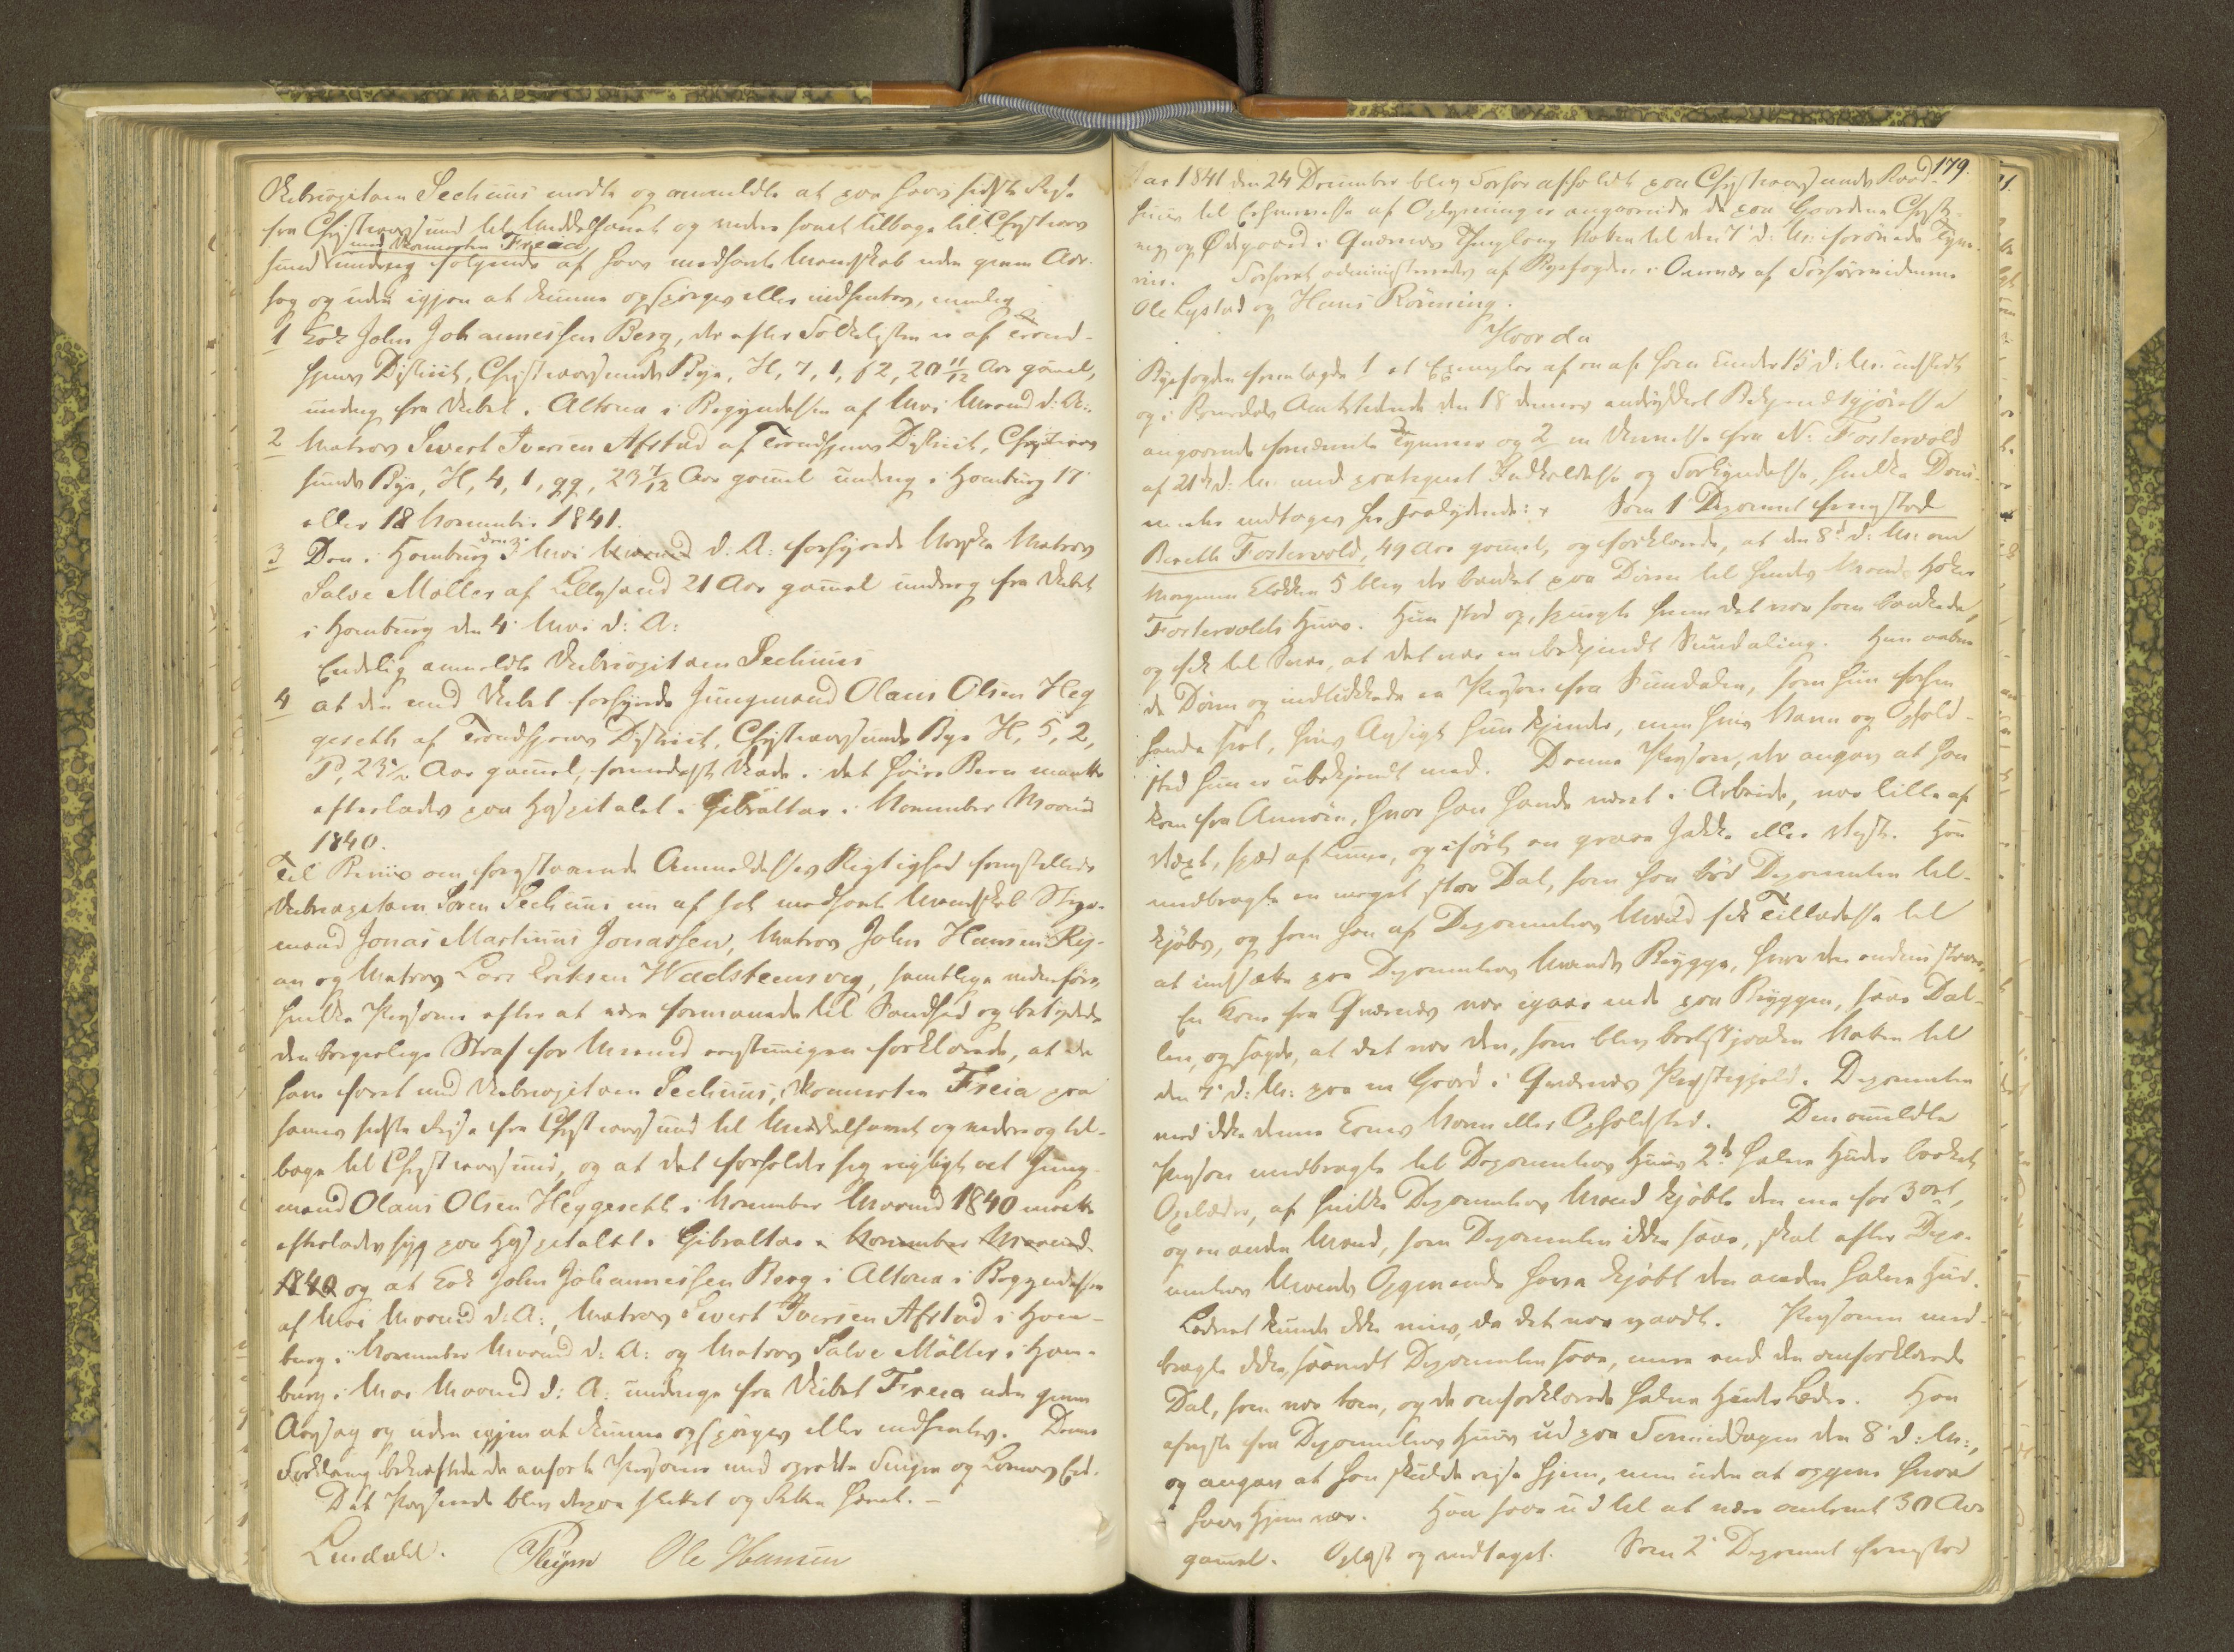 Skibscapitain Sechuus mødte og anmeldte at paa hans sidste Reise
fra Christiansund til Middelhavet og videre samt tilbage til Christian
med Skonnerten Freia
sund undveg følgende af hans medhavte Mandskab uden given Aar-
sag og uden igjen at kunne opspørges eller indhentes, nemlig
1 Kok John Johannessen Berg, der efter Folkelisten er af Trond-
hjems District, Christiansunds Bye, H, 7, 1, f 2, 20 11/12 Aar gammel,
undveg fra Skibet i Altona i Begyndelsen af Mai Maaned d: A:.
2 Matros Sivert Iversen Afstad af Trondhjems District, Christian
sunds Bye, H, 4, 1, qq, 23 7/12 Aar gammel undveg i Hamburg 17
eller 18 November 1841.
3 Den i Hamburg den 3 Mai Maaned d: A: forhyrede Norske Matros
Salve Møller af Lillesand 21 Aar gammel undveg fra Skibet
i Hamburg den 4 Mai d: A:
Endelig anmeldte Skibscapitain Sechuus
4 at den med Skibet forhyrede Jungmand Olaus Olsen Heg
geseth af Trondhjems District, Christiansunds Bye H, 5, 2,
P, 23 Aar gammel, formedelst Skade i det høire Been maatte
efterlades paa Hospitalet i Gibraltar i November Maaned
1840.
Til Beviis om foranstaaende Anmeldelses Rigtighed fremstillede
Skibscapitain Søren Sechuus nu af sit medhavte Mandskab Styr-
mand Jonas Martinus Jonassen, Matros John Hansen Ry-
an og Matros Lars Eriksen Wadsteensvig, samtlige edenføre,
hvilke Personer efter at være formanede til Sandhed og betydede
den borgerlige Straf for Meened eenstemmigen forklarede, at de
have faret med Skibscapitain Sechuus, Skonnerten Freia paa
hannes sidste Reise fra Christiansund til Middelhavet og videre og til-
bage til Christiansund, og at det forholder sig rigtigt at Jung-
mand Olaus Olsen Heggeseth i November Maaned 1840 maatte
efterlades syg paa Hospitalet i Gibraltar i November Maaned
1840 og at Kok John Johannessen Berg i Altona i Begyndelsen
af Mai Maaned d: A:, Matros Sivert Iversen Afstad i Ham-
burg i November Maaned d: A: og Matros Salve Møller i Ham-
burg i Mai Maaned d: A: undvege fra Skibet Freia uden given
Aarsag og uden igjen at kunne opspørges eller indhentes. Denne
Forklaring bekræftede de anførte Personer med oprakte Fingre og Lovens Eed.
Det Passerede blev derpaa sluttet og Retten hævet. –
Lindahl. Ole Hansen
179.
Aar 1841 den 24 December blev Forhør afholdt paa Christiansunds Raad-
huus til Erhvervelse af Oplysninger angaaende de paa Gaardene
og Ødegaard i Qværnæs Thinglaug Natten til den 7de d: M: forøvede Tyve-
rier. Forhøret administreredes af Byefogden i Overvær af Forhørsvidnerne
Ole Lystad og Hans Rønning.
Hvorda
Byefogden fremlagde 1 et Exemplar af en af ham under 15 d: M: udstedt
og i Romsdals Amtstidende den 18 dennes indrykket Bekjendtgjørelse
angaaende fornævnte Tyverier og 2 en Skrivelse fra N: Fostervold
af 21de d: M: med paategnet Indkaldelse og Forkyndelse, hvilke Docu-
menter indtages her saalydende: Som 1 Deponent fremstod
Bereth Fostervold, 49 Aar gammel, og forklarede, at den 8de d: M: om
Morgenen Klokken 5 blev der banket paa Døren til hendes Mands Høker
Fostervolds Huus. Hun stod op, spurgte hvem det var som bankede,
og fik til Svar, at det var en bekjendt Sundaling. Hun aabne-
de Døren og indlukkede en Person fra Sundalen, som hun forhen
havde seet, hvis Ansigt hun kjender, men hvis Navn og Ophold-
sted hun er ubekjendt med. Denne Person, der angav at han
kom fra Averøen, hvor han havde været i Arbeide, var lille af
Vext, spæd af Lemmer, og iført en graae Jakke eller Vest. Han
medbragte en meget stor Dal, som han bød Deponenten til-
kjøbs, og som han af Deponentens Mand fik Tilladelse til
at indsætte paa Deponentens Mands Brygge, hvor den endnu staaer.
En Kone fra Qværnæs var igaar inde paa Bryggen, saae Dal-
len, og sagde, at det var den, som blev bortstjaalen Natten til
den 7de d: M: paa en Gaard i Qværnæs Præstegjeld. Deponenten
ved ikke denne Kones Navn eller Opholdsted. Den ommeldte
Person medbragte til Deponentens Huus 2de halve Huder barket
Oplæder, af hvilke Deponentens Mand kjøbte den ene for 3 ort,
og en anden Mand, som Deponenten ikke saae, skal efter Depo-
nentens Mands Opgivende have kjøbt den anden halve Hud.
Læderet kunde ikke veies, da det var vaadt. Personen med-
bragte ikke, saavidt Deponenten saae, mere end den omforklarede
Dal, som var tom, og de omforklarede halve Huder Læder. Han
afreiste fra Deponentens Huus ud paa Formiddagen den 8de d: M:,
og angav at han skulde reise hjem, men uden at opgive hvor
hans Hjem var. Han saae ud til at være omtrent 30 Aar
gammel. Oplæst og vedtaget. Som 2de Deponent fremstod